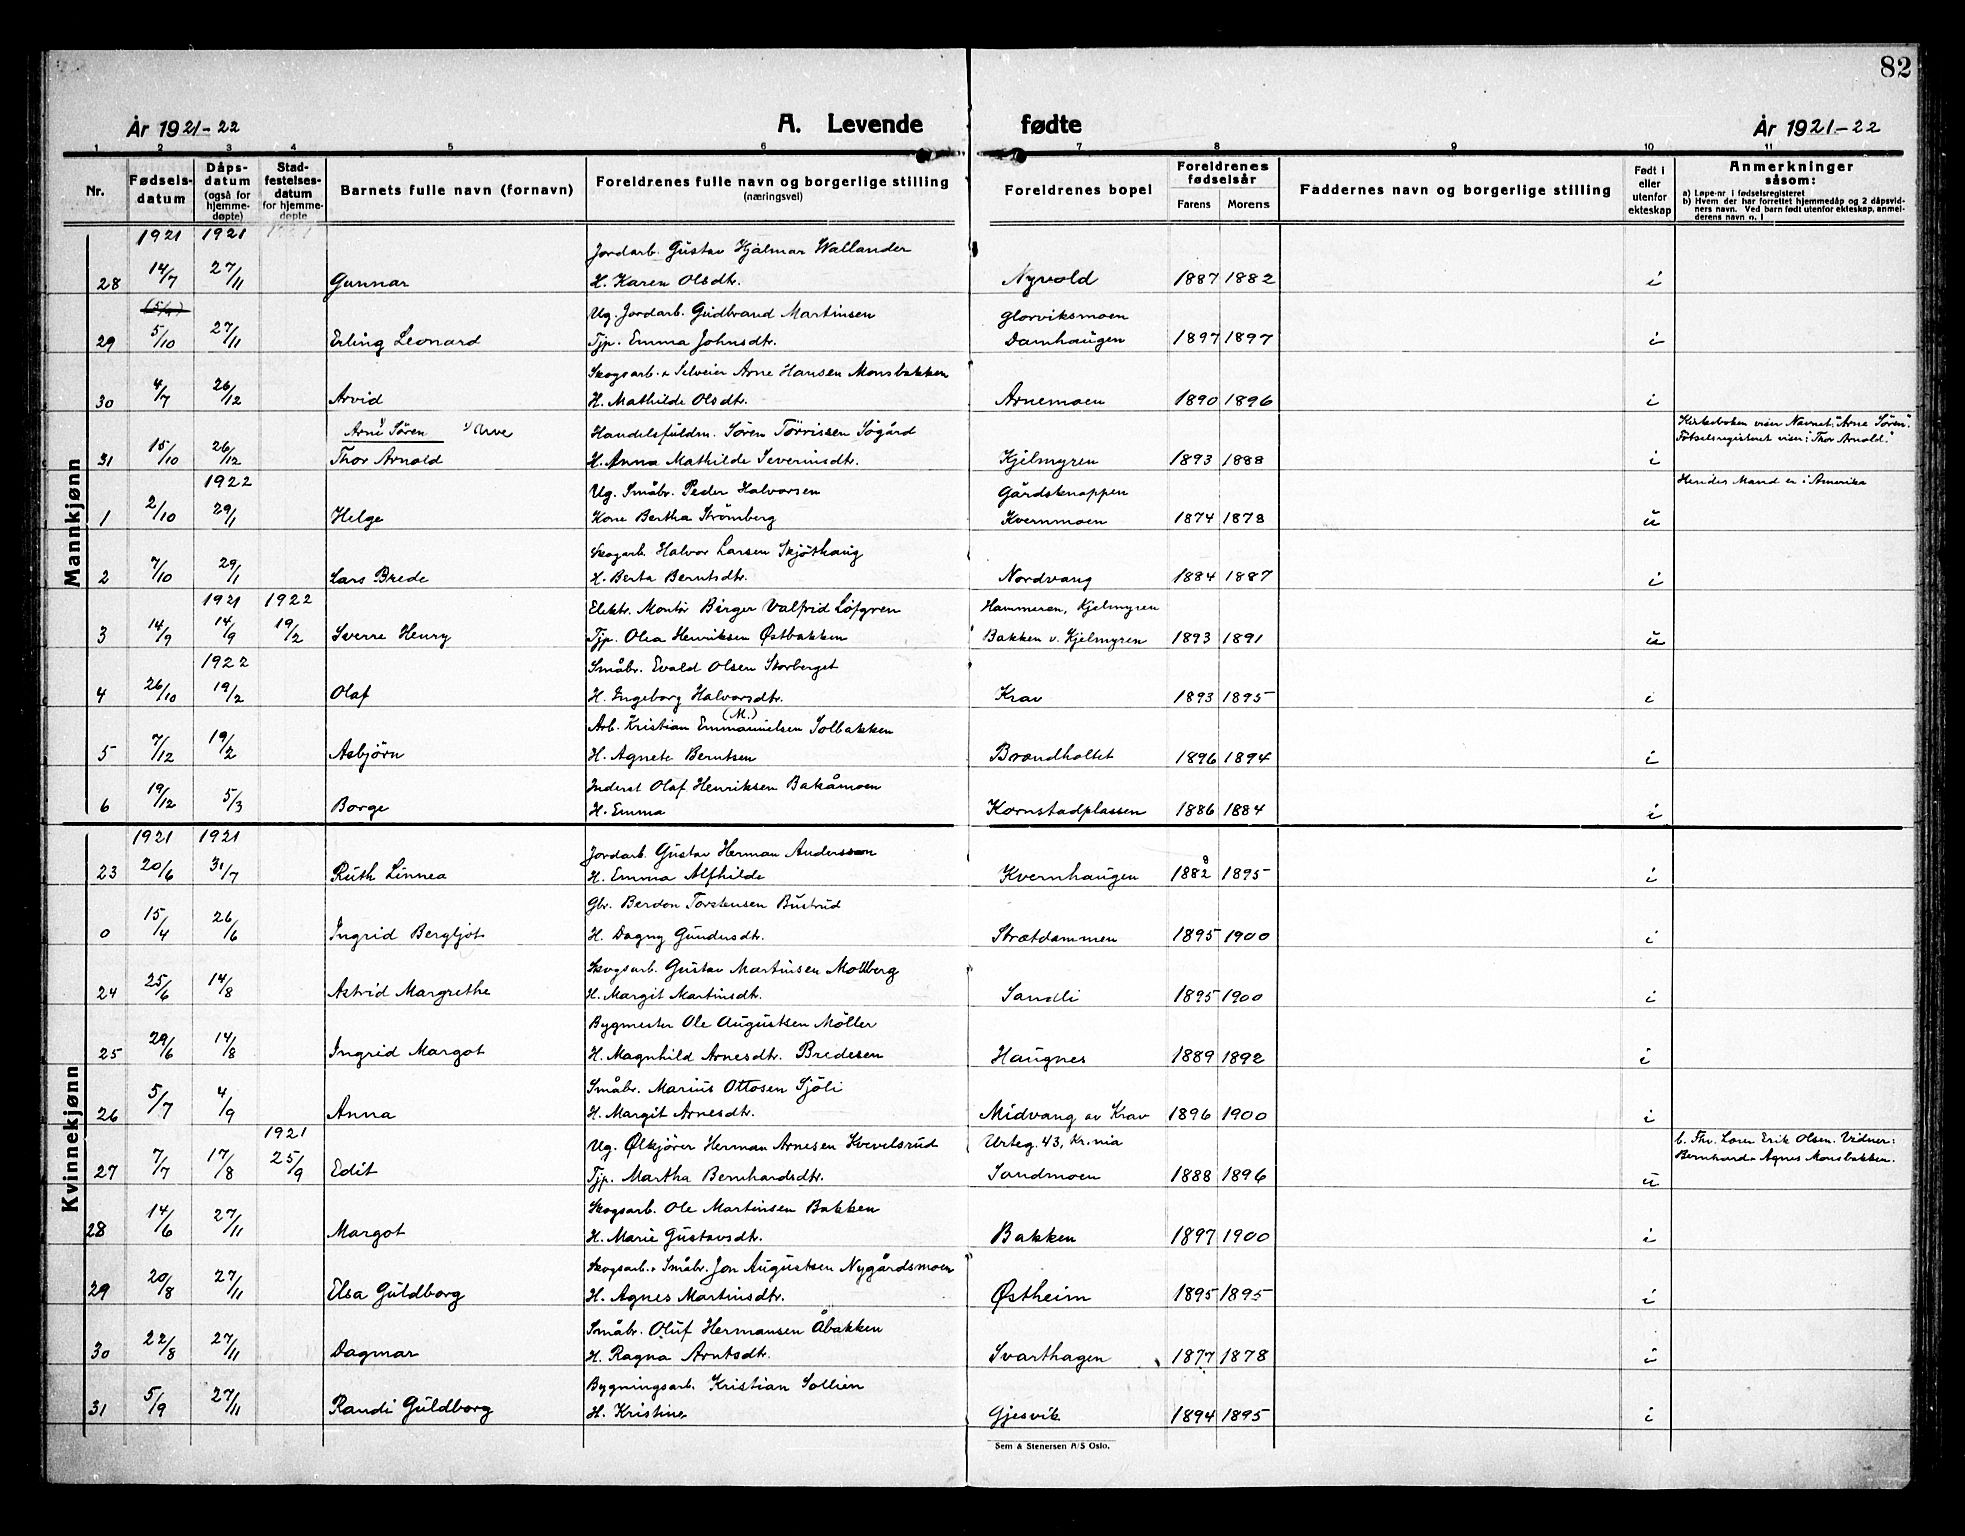 82
År 1921-22 A. Levende fødte År 1921-22
1 2 3 4 5 6 7 8 9 10 11
Nr. Fødselsdatum Dåpsdatum (også for hjemmedøpte) Stadfestelsesdatum for hjemmedøpte Barnets fulle navn (fornavn) Foreldrenes fulle navn og borgerlige stilling (næringsvei) Foreldrenes bopel Foreldrenes fødselsår Farens Morens Faddernes navn og borgerlige stilling Født i eller utenfor ekteskap Anmerkninger såsom:
a) Løpe-nr. i fødselsregisteret
b) Hvem der har forrettet hjemmedåp og 2 dåpsvidners navn. Ved barn født utenfor ekteskap, anmelderens navn n. 1
Mannkjønn
1921 1921
Jordarb. Gustav Hjalmar Wallander
28 14/7 27/11 Gunnar H. Karen Olsdtr. Nyvold 1887 1882 i
(5/9) Ug. Jordarb. Gudbrand Martinsen Glorviksmoen
29 5/10 27/11 Erling Leonard Tjp. Emma Johnsdtr. Damhaugen 1897 1897 i
Skogsarb. & Selveier Arne Hansen Monsbakken
30 4/7 26/12 Arvid H. Mathilde Olsdtr. Arnemoen 1890 1896 i
Arne Søren Handelsfuldm. Søren Tørrissen Søgård Kirkeboken viser Navnet: "Arne Søren".
Fötselsregisteret viser: "Thor Arnold."
31 15/10 26/12 Thor Arnold H. Anna Mathilde Severinsdtr. Kjelmyren 1893 1888 i
1922 Ug. Småbr. Peder Halvorsen Gårdsknappen Hendes Mand er i Amerika
1 2/10 29/1 Helge Kone Bertha Strømberg Kvernmoen 1874 1878 u
Skogarb. Halvor Larsen Skjöthaug
2 7/10 29/1 Lars Brede H. Berta Berntsdtr. Nordvang 1884 1887 i
1921 1922 Elektr. Montör Birger Valfrid Löfgren Hammeren, Kjelmyren
3 14/9 14/9 19/2 Sverre Henry Tjp. Olea Henriksen Østbakken Bakken v. Kjelmyren 1893 1891 u
1922 Småbr. Evald Olsen Storberget
4 26/10 19/2 Olaf H. Ingeborg Halvorsdtr. Krav 1893 1895 i
Arb. Kristian Emmanuelsen (M.) Solbakken
5 7/12 19/2 Asbjörn H. Agnete Berntsen Brændholtet 1896 1894 i
Inderst Olaf Henriksen Bakåmoen
6 19/12 5/3 Borge H. Emma Kornstadplassen 1886 1884 i
Kvinnekjønn
1921 1921
Jordarb. Gustav Herman Andersson
23 20/6 31/7 Ruth Linnea H. Emma Alfhilde Kvernhaugen 1882 1895 i
Gbr. Berdon Torstensen Bustrud
0 15/4 26/6 Ingrid Bergljot H. Dagny Gundersdtr. Strætdammen 1895 1900 i
Skogsarb. Gustav Martinsen Mollberg
24 25/6 14/8 Astrid Margrethe H. Margit Martinsdtr. Sandli 1895 1900 i
Bygmester Ole Augustsen Möller
25 29/6 14/8 Ingrid Margot H. Magnhild Arnesdtr. Bredesen Haugnes 1889 1892 i
Småbr. Marius Ottosen Sjöli
26 5/7 4/9 Anna H. Margit Arnesdtr. Midvang av Krav 1896 1900 i
1921 Ug. Ølkjörer Herman Arnesen Kvevelsrud Urteg. 43, Kr.nia b. Fhv. Lærer Erik Olsen. Vidner:
Bernhard & Agnes Monsbakken.
27 7/7 17/8 25/9 Edit Tjp. Martha Bernhardsdtr. Sandmoen 1888 1896 u
Skogsarb. Ole Martinsen Bakken
28 14/6 27/11 Margot H. Marie Gustavsdtr. Bakken 1897 1900 i
Skogsarb. & Småbr. Jon Augustsen Nygårdsmoen
29 20/8 27/11 Elsa Guldborg H. Agnes Martinsdtr. Østheim 1895 1895 i
Småbr. Oluf Hermansen Åbakken
30 22/8 27/11 Dagmar H. Ragna Arntsdtr. Svarthagen 1877 1878 i
Bygningsarb. Kristian Sollien
31 5/9 27/11 Randi Guldborg H. Kristine Gjesvik 1894 1895 i
Sem & Stenersen A/S Oslo.